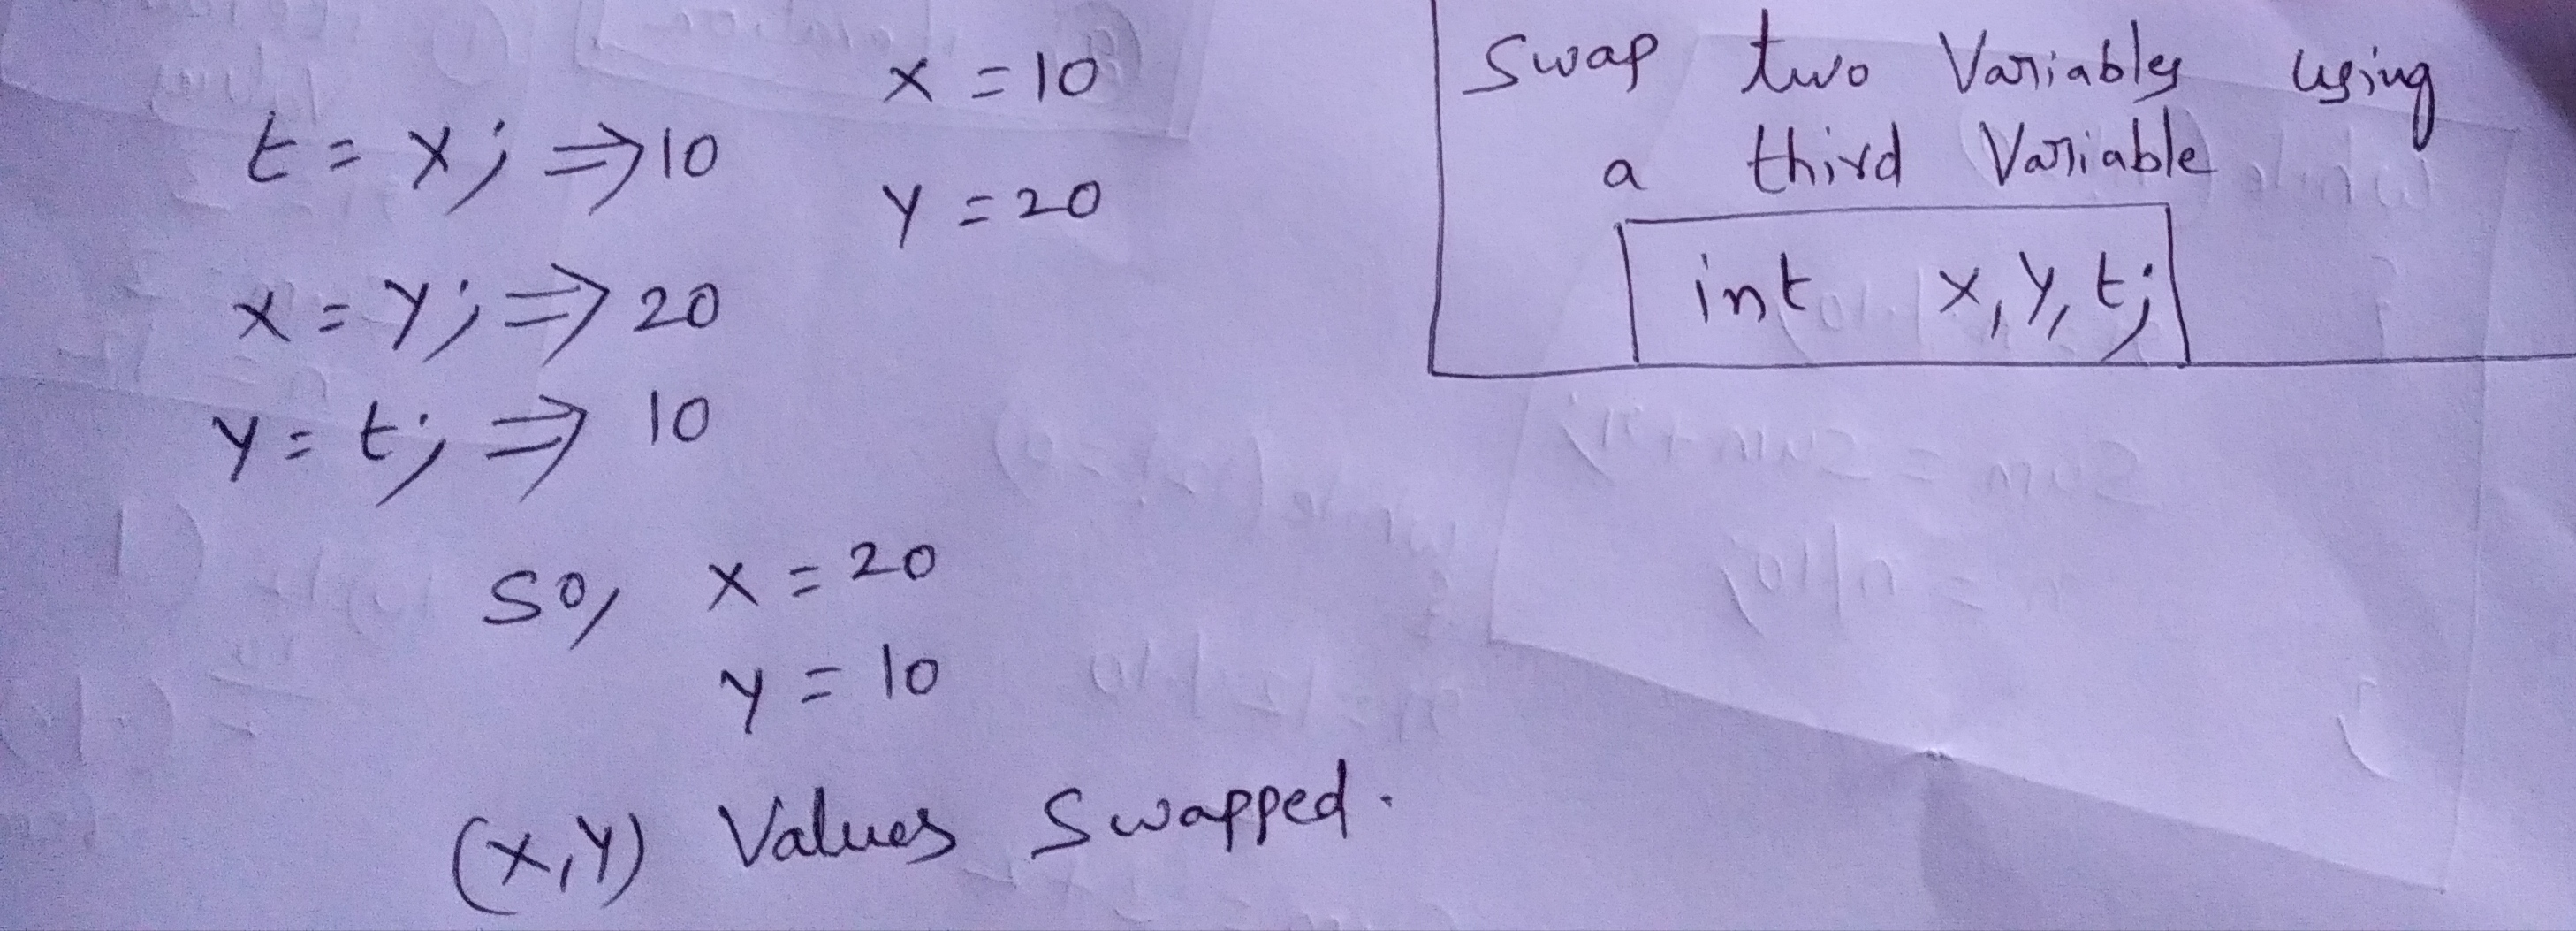 Swap two Variables using
a third Variable
int x, y, t;
x = 10
y = 20
t = x; ⇒ 10
x = y; ⇒ 20
y = t; ⇒ 10
so, x = 20
y = 10
(x, y) Values Swapped.